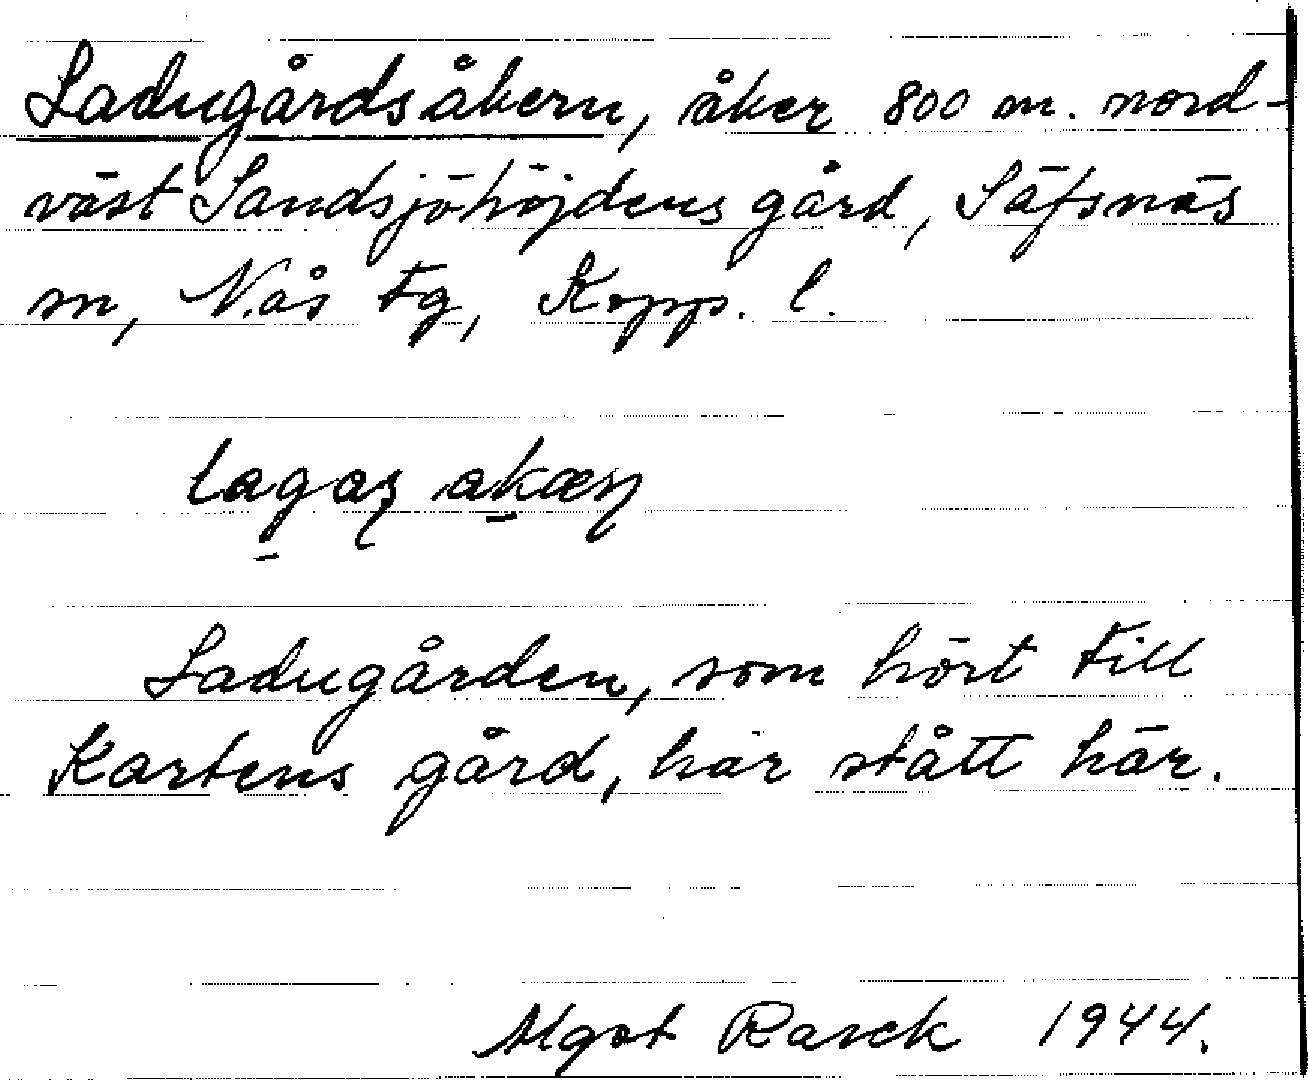 Ladugårdsåkern, åker 800 m. nord-
väst Sandsjöhöjdens gård, Säfsnäs
sn, Nås tg, Kopp. l.
Ladugården, som hört till
Kartens gård, har stått här.
Algot Rasck 1944.